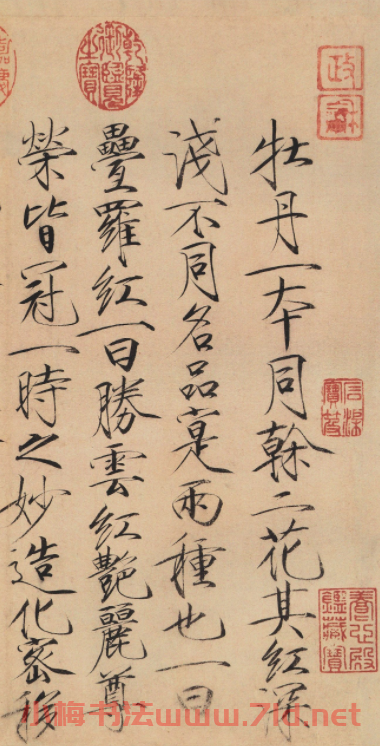 牡丹一本同榦二花其紅深
淺不同名品寔兩種也一曰
疊羅紅一曰勝雲紅艷麗尊
榮皆冠一時之妙造化密移
政龢
乾隆御覽之寶
養心殿鑑藏寶
小梅书法www.71d.net